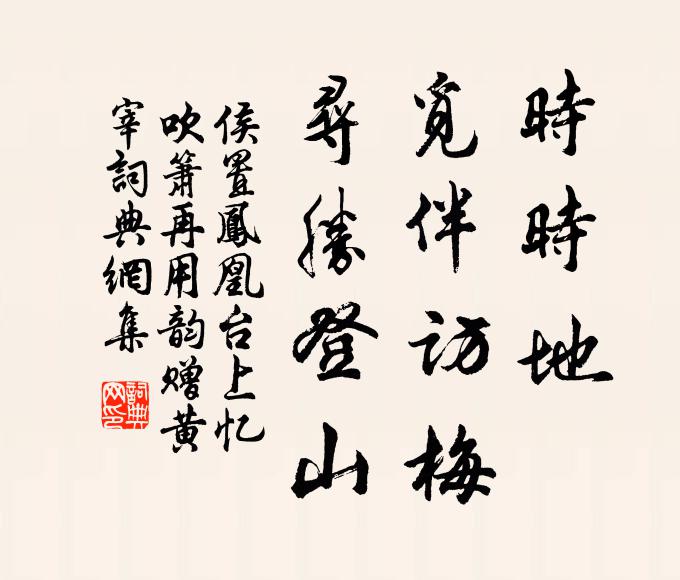 時時地
覓伴訪梅
尋勝登山
侯置鳳凰台上忆
吹簫再用韵贈黄
宰詞典網集
詞典网印